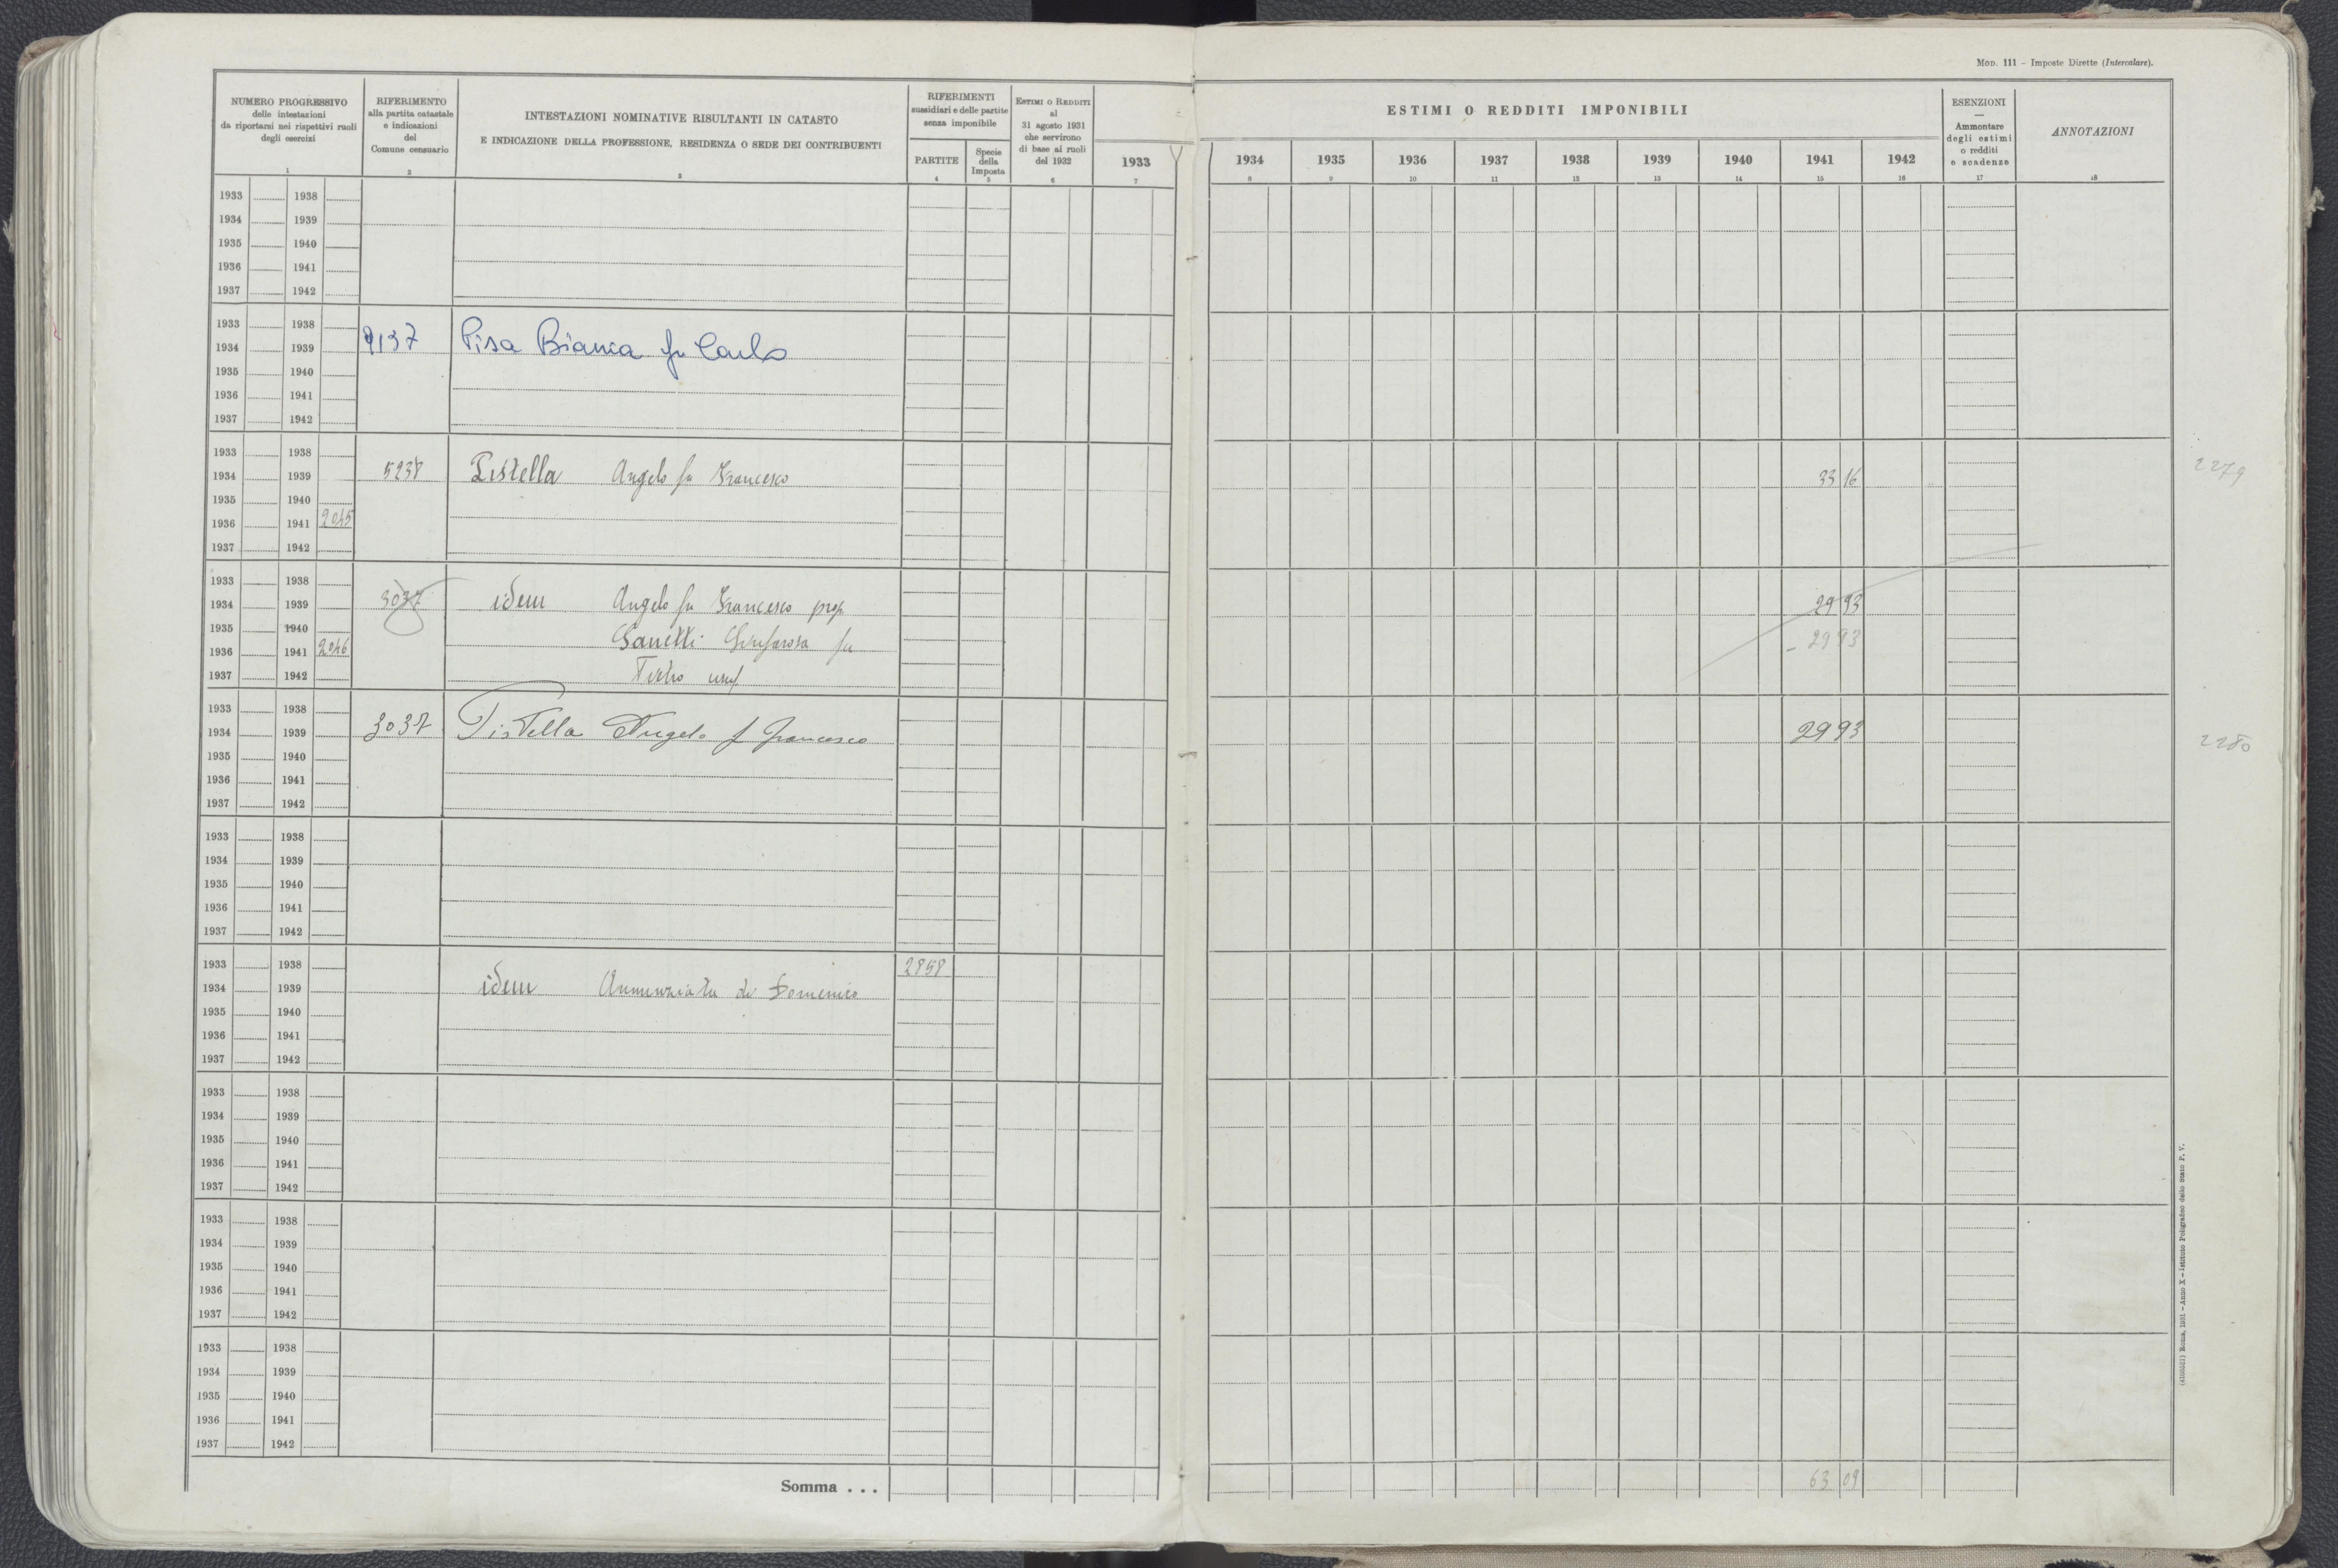 MOD. 111 - Imposte Dirette (Intercalare).
NUMERO PROGRESSIVO
delle intestazioni
da riportarsi nei rispettivi ruoli
degli esercizi
1
RIFERIMENTO
alla partita catastale
e indicazioni
del
Comune censuario
2
INTESTAZIONI NOMINATIVE RISULTANTI IN CATASTO
E INDICAZIONE DELLA PROFESSIONE, RESIDENZA O SEDE DEI CONTRIBUENTI
3
RIFERIMENTI
sussidiari e delle partite
senza imponibile
PARTITE
4
Specie
della
Imposta
5
ESTIMI O REDDITI
al
31 agosto 1931
che servirono
di base ai ruoli
del 1932
6
1933
7
ESTIMI O REDDITI IMPONIBILI
1934 1935 1936 1937 1938 1939 1940 1941 1942
8 9 10 11 12 13 14 15 16
ESENZIONI
—
Ammontare
degli estimi
o redditi
e scadenze
17
ANNOTAZIONI
18
1933 1938
1934 1939
1935 1940
1936 1941
1937 1942
1933 1938
1934 1939 9137 Pisa Bianca fu Carlo
1935 1940
1936 1941
1937 1942
1933 1938
1934 1939 5238 Pistella Angelo fu Francesco 33 16 2279
1935 1940
1936 1941 2045
1937 1942
1933 1938
1934 1939 3037 idem Angelo fu Francesco prop 29 93
1935 1940
1936 1941 2046 fu - 29 93
1937 1942 usuf
1933 1938
1934 1939 3037 Pistella Angelo f Francesco 29 93 2280
1935 1940
1936 1941
1937 1942
1933 1938
1934 1939
1935 1940
1936 1941
1937 1942
1933 1938 2858
1934 1939 idem Annunziata di Domenico
1935 1940
1936 1941
1937 1942
1933 1938
1934 1939
1935 1940
1936 1941
1937 1942
1933 1938
1934 1939
1935 1940
1936 1941
1937 1942
1933 1938
1934 1939
1935 1940
1936 1941
1937 1942
Somma . . . 63 09
Roma, 1931 - Anno X - Istituto Poligrafico dello Stato P. V.